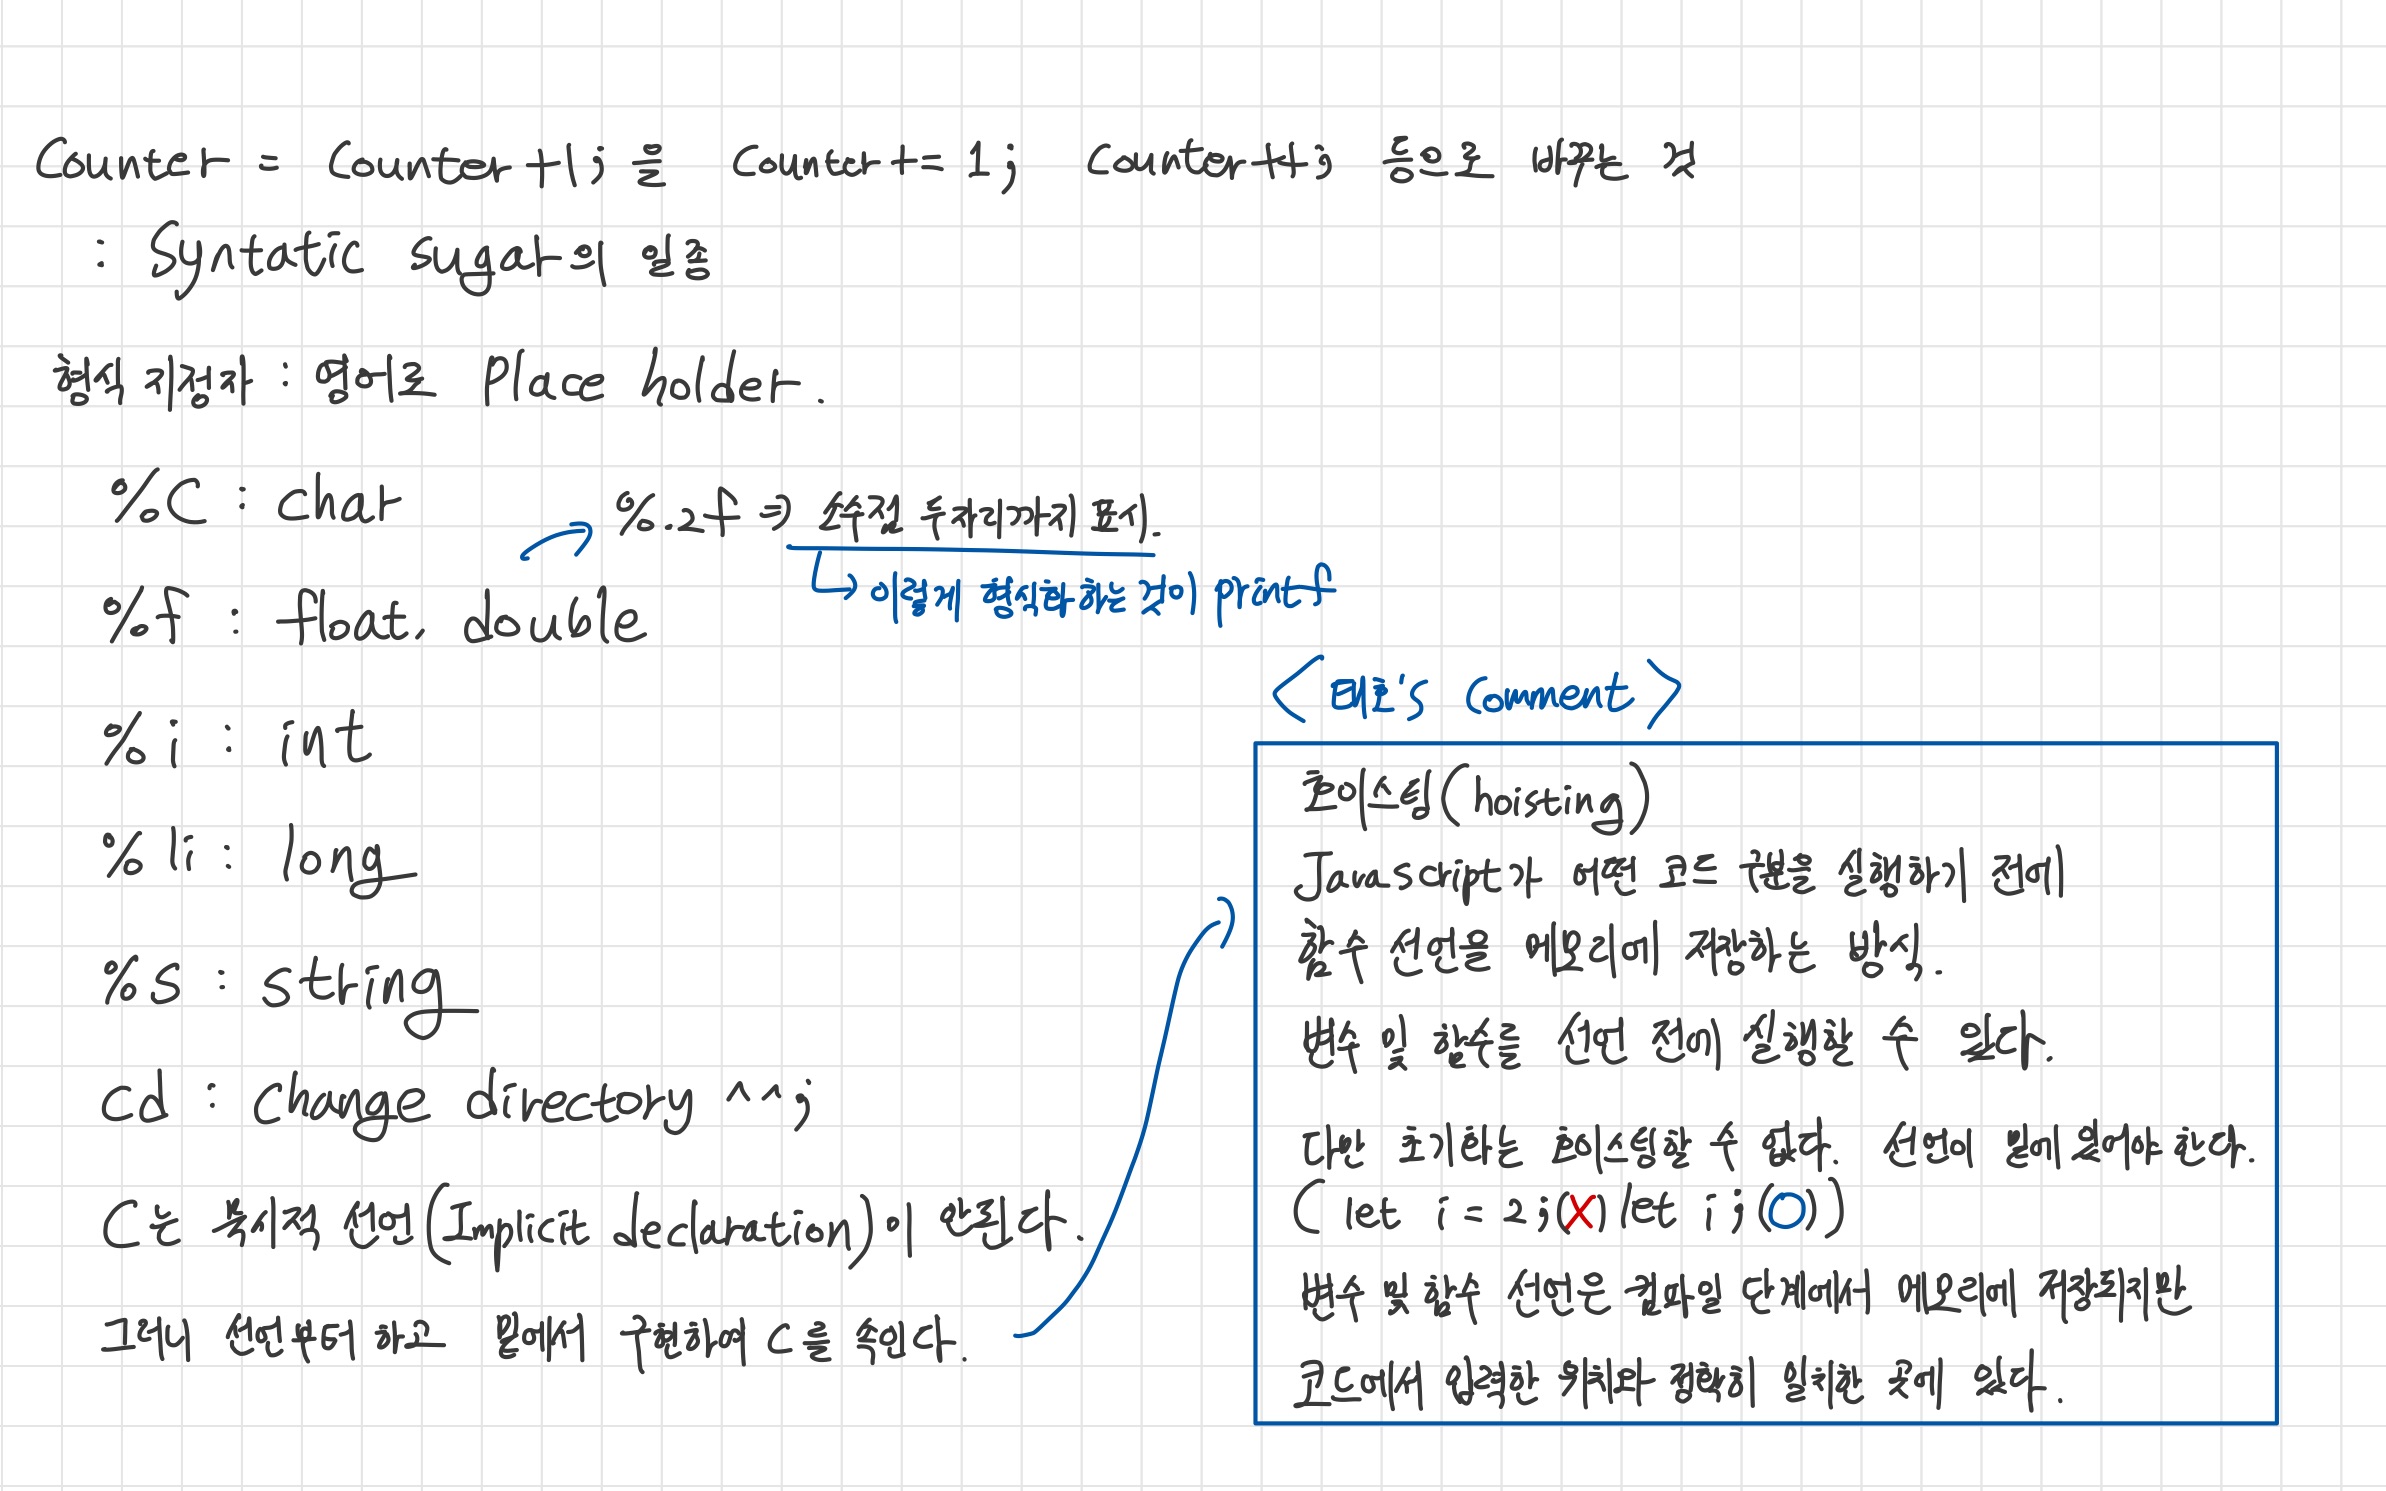 Counter = Counter+1; 을 Counter += 1; Counter++; 등으로 바꾸는 것
: Syntatic sugar의 일종
형식 지정자 : 영어로 Place holder.
%C : char
%.2f ⇒ 소수점 두자리까지 표시.
이렇게 형식화 하는 것이 printf
%f : float, double
%i : int
%li : long
%s : string
cd : change directory ^^;
C는 묵시적 선언(Implicit declaration)이 안된다.
그러니 선언부터 하고 밑에서 구현하여 C를 속인다.
<태호's Comment>
호이스팅(hoisting)
Javascript가 어떤 코드 구문을 실행하기 전에
함수 선언을 메모리에 저장하는 방식.
변수 및 함수를 선언 전에 실행할 수 있다.
다만 초기화는 호이스팅할 수 없다. 선언이 밑에 있어야 한다.
(let i = 2;(X) let i;(O))
변수 및 함수 선언은 컴파일 단계에서 메모리에 저장되지만
코드에서 입력한 위치와 정확히 일치한 곳에 있다.